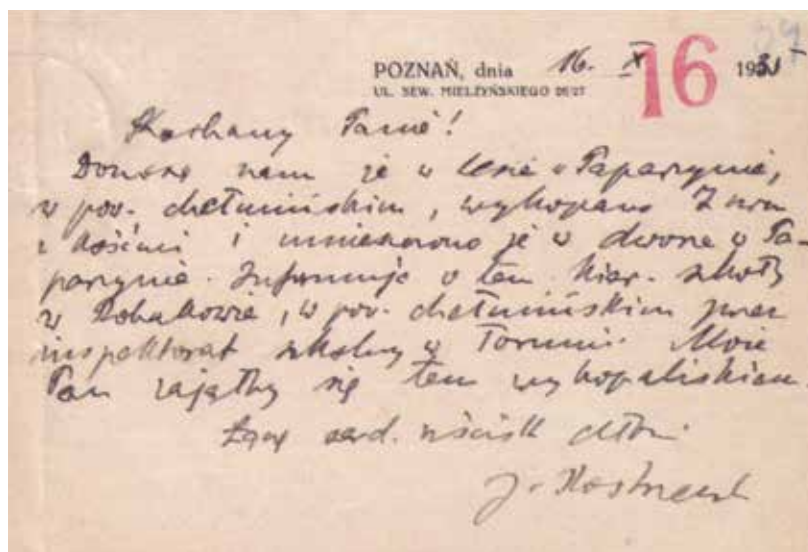 POZNAŃ, dnia 16. X 1935
UL. SEW. MIELŻYŃSKIEGO 26/27
16
Kochany Panie!
Donoszą nam że w lesie w Paparzynie,
w pow. chełmińskim, wykopano 7 urn
z kośćmi i umieszczono je w dworze w Pa-
parzynie. Informuje o tem kier. szkoły
w Robakowie, w pow. chełmińskim przez
inspektorat szkolny w Toruniu. Może
Pan zająłby się tem wykopaliskiem
Łączę serd. uścisk dłoni
J. Kostrzewski